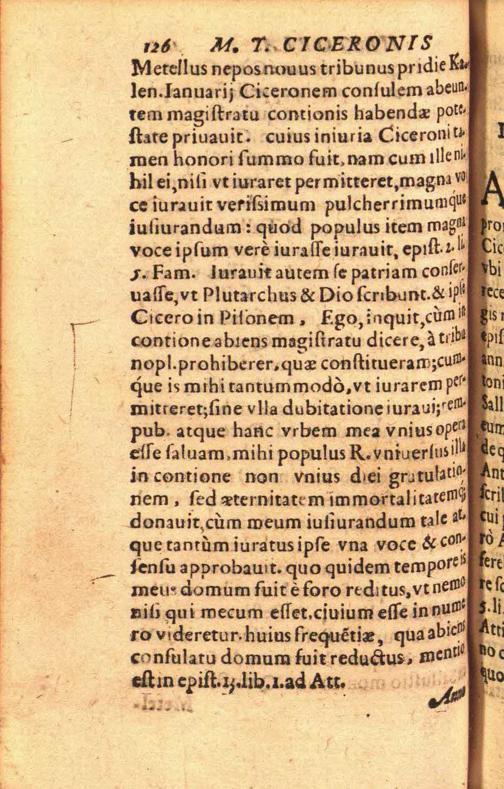 126 M. T. CICERONIS
Metellus nepos nouus tribunus pridie Ka-
len. Ianuarij Ciceronem consulem abeun-
tem magistratu contionis habendæ pote-
state priuauit. cuius iniuria Ciceroni ta-
men honori summo fuit, nam cum ille ni-
hil ei, nisi vt iuraret permitteret, magna vo
ce iurauit verissimum pulcherrimumque
iusiurandum: quod populus item magna
voce ipsum verè iurasse iurauit, epist. 2. li.
5. Fam. Iurauit autem se patriam conser-
uasse, vt Plutarchus & Dio scribunt. & ipse
Cicero in Pisonem, Ego, inquit, cùm in
contione abiens magistratu dicere, à tribu
nopl. prohiberer, quæ constitueram; cum-
que is mihi tantummodò, vt iurarem per-
mitteret; sine vlla dubitatione iuraui; rem-
pub. atque hanc vrbem mea vnius opera
esse saluam. mihi populus R. vniuersus illa
in contione non vnius diei gratulatio-
nem, sed æternitatem immortalitatemq;
donauit, cùm meum iusiurandum tale at-
que tantùm iuratus ipse vna voce & con-
sensu approbauit. quo quidem tempore is
meus domum fuit è foro reditus, vt nemo
nisi qui mecum esset, ciuium esse in nume
ro videretur. huius frequẽtiæ, qua abiens
consulatu domum fuit reductus, mentio
est in epist. 13. lib. 1. ad Att.
Anno
A
pro
Cic
vbi
rece
gis
epis
ann
toni
Sall
eum
de q
Ant
scri
cui
rò A
fere
re sc
5. li.
Atti
no c
quo